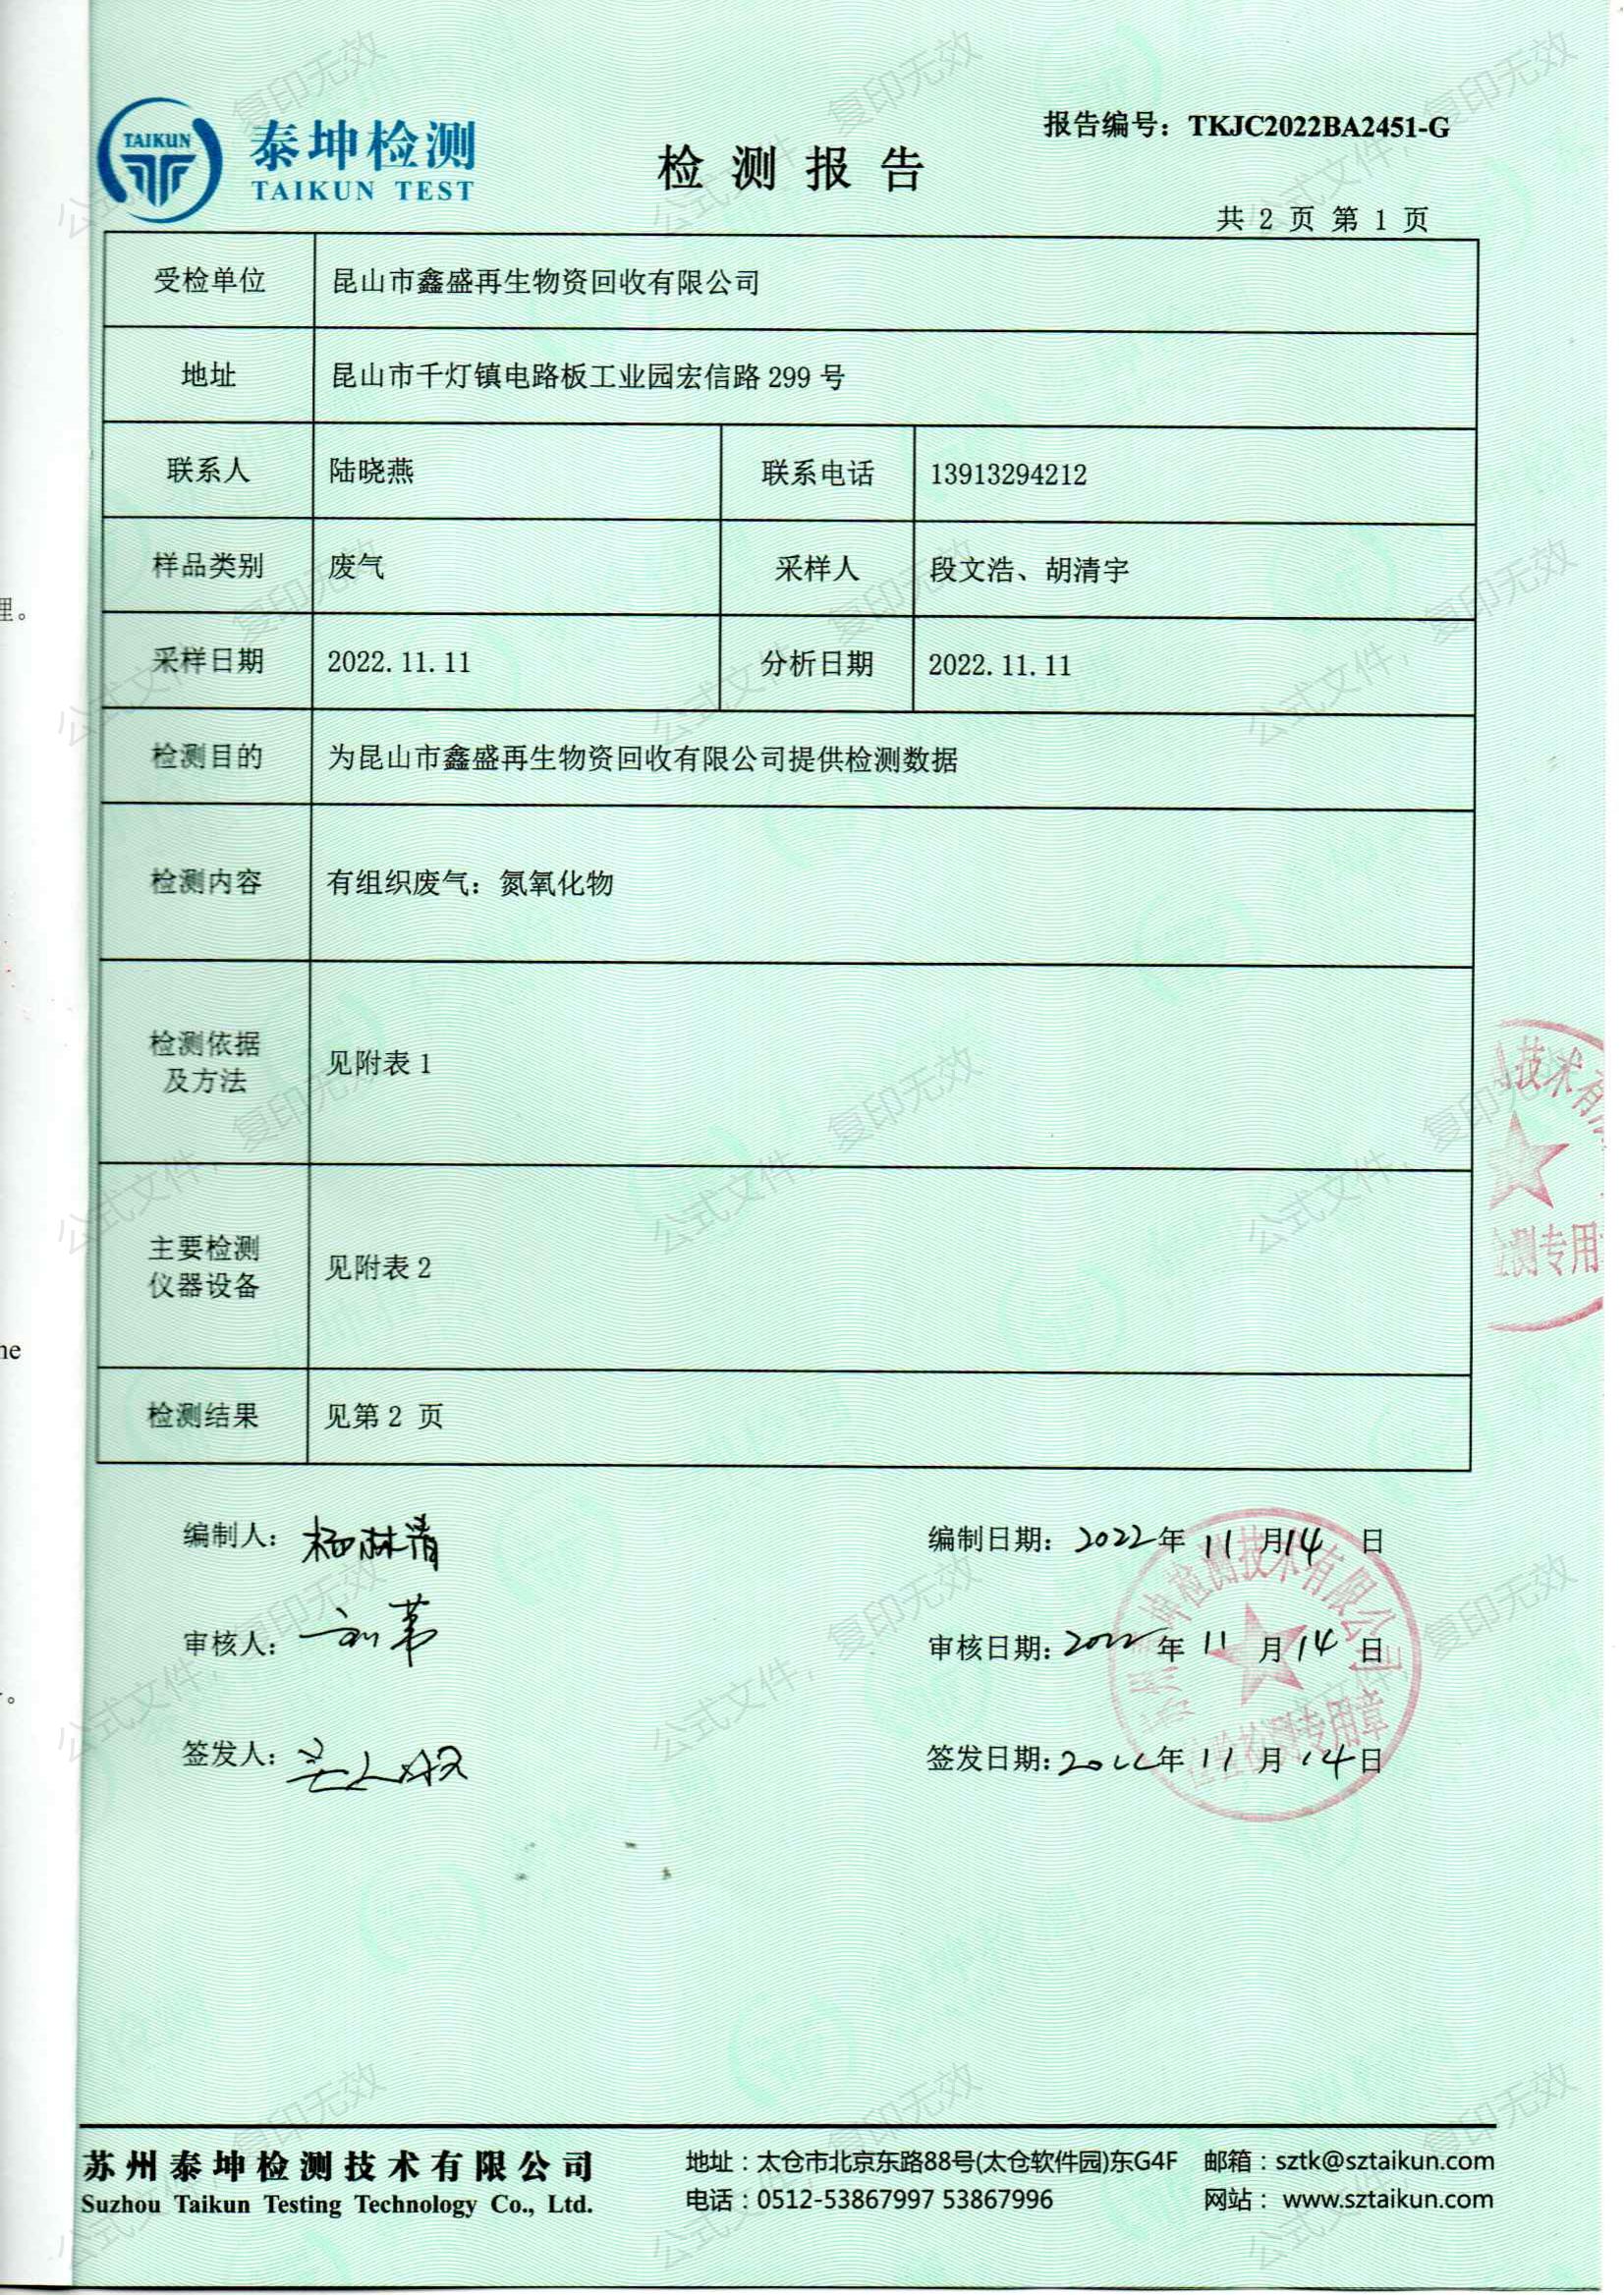 TAIKUN
泰坤检测
TAIKUN TEST
检测报告
报告编号：TKJC2022BA2451-G
共 2 页 第 1 页
受检单位 昆山市鑫盛再生物资回收有限公司
地址 昆山市千灯镇电路板工业园宏信路 299 号
联系人 陆晓燕 联系电话 13913294212
样品类别 废气 采样人 段文浩、胡清宇
采样日期 2022.11.11 分析日期 2022.11.11
检测目的 为昆山市鑫盛再生物资回收有限公司提供检测数据
检测内容 有组织废气：氮氧化物
检测依据
及方法
见附表 1
主要检测
仪器设备
见附表 2
检测结果 见第 2 页
编制人： 编制日期：2022年 11 月 14 日
审核人： 审核日期：2022年 11 月 14 日
签发人： 签发日期：2022年 11 月 14 日
坤检测技术有限公司
检验检测专用章
技术有
测专用
公式文件，复印无效
理。
he
苏州泰坤检测技术有限公司
Suzhou Taikun Testing Technology Co., Ltd.
地址：太仓市北京东路88号(太仓软件园)东G4F 邮箱：sztk@sztaikun.com
电话：0512-53867997 53867996 网站：www.sztaikun.com